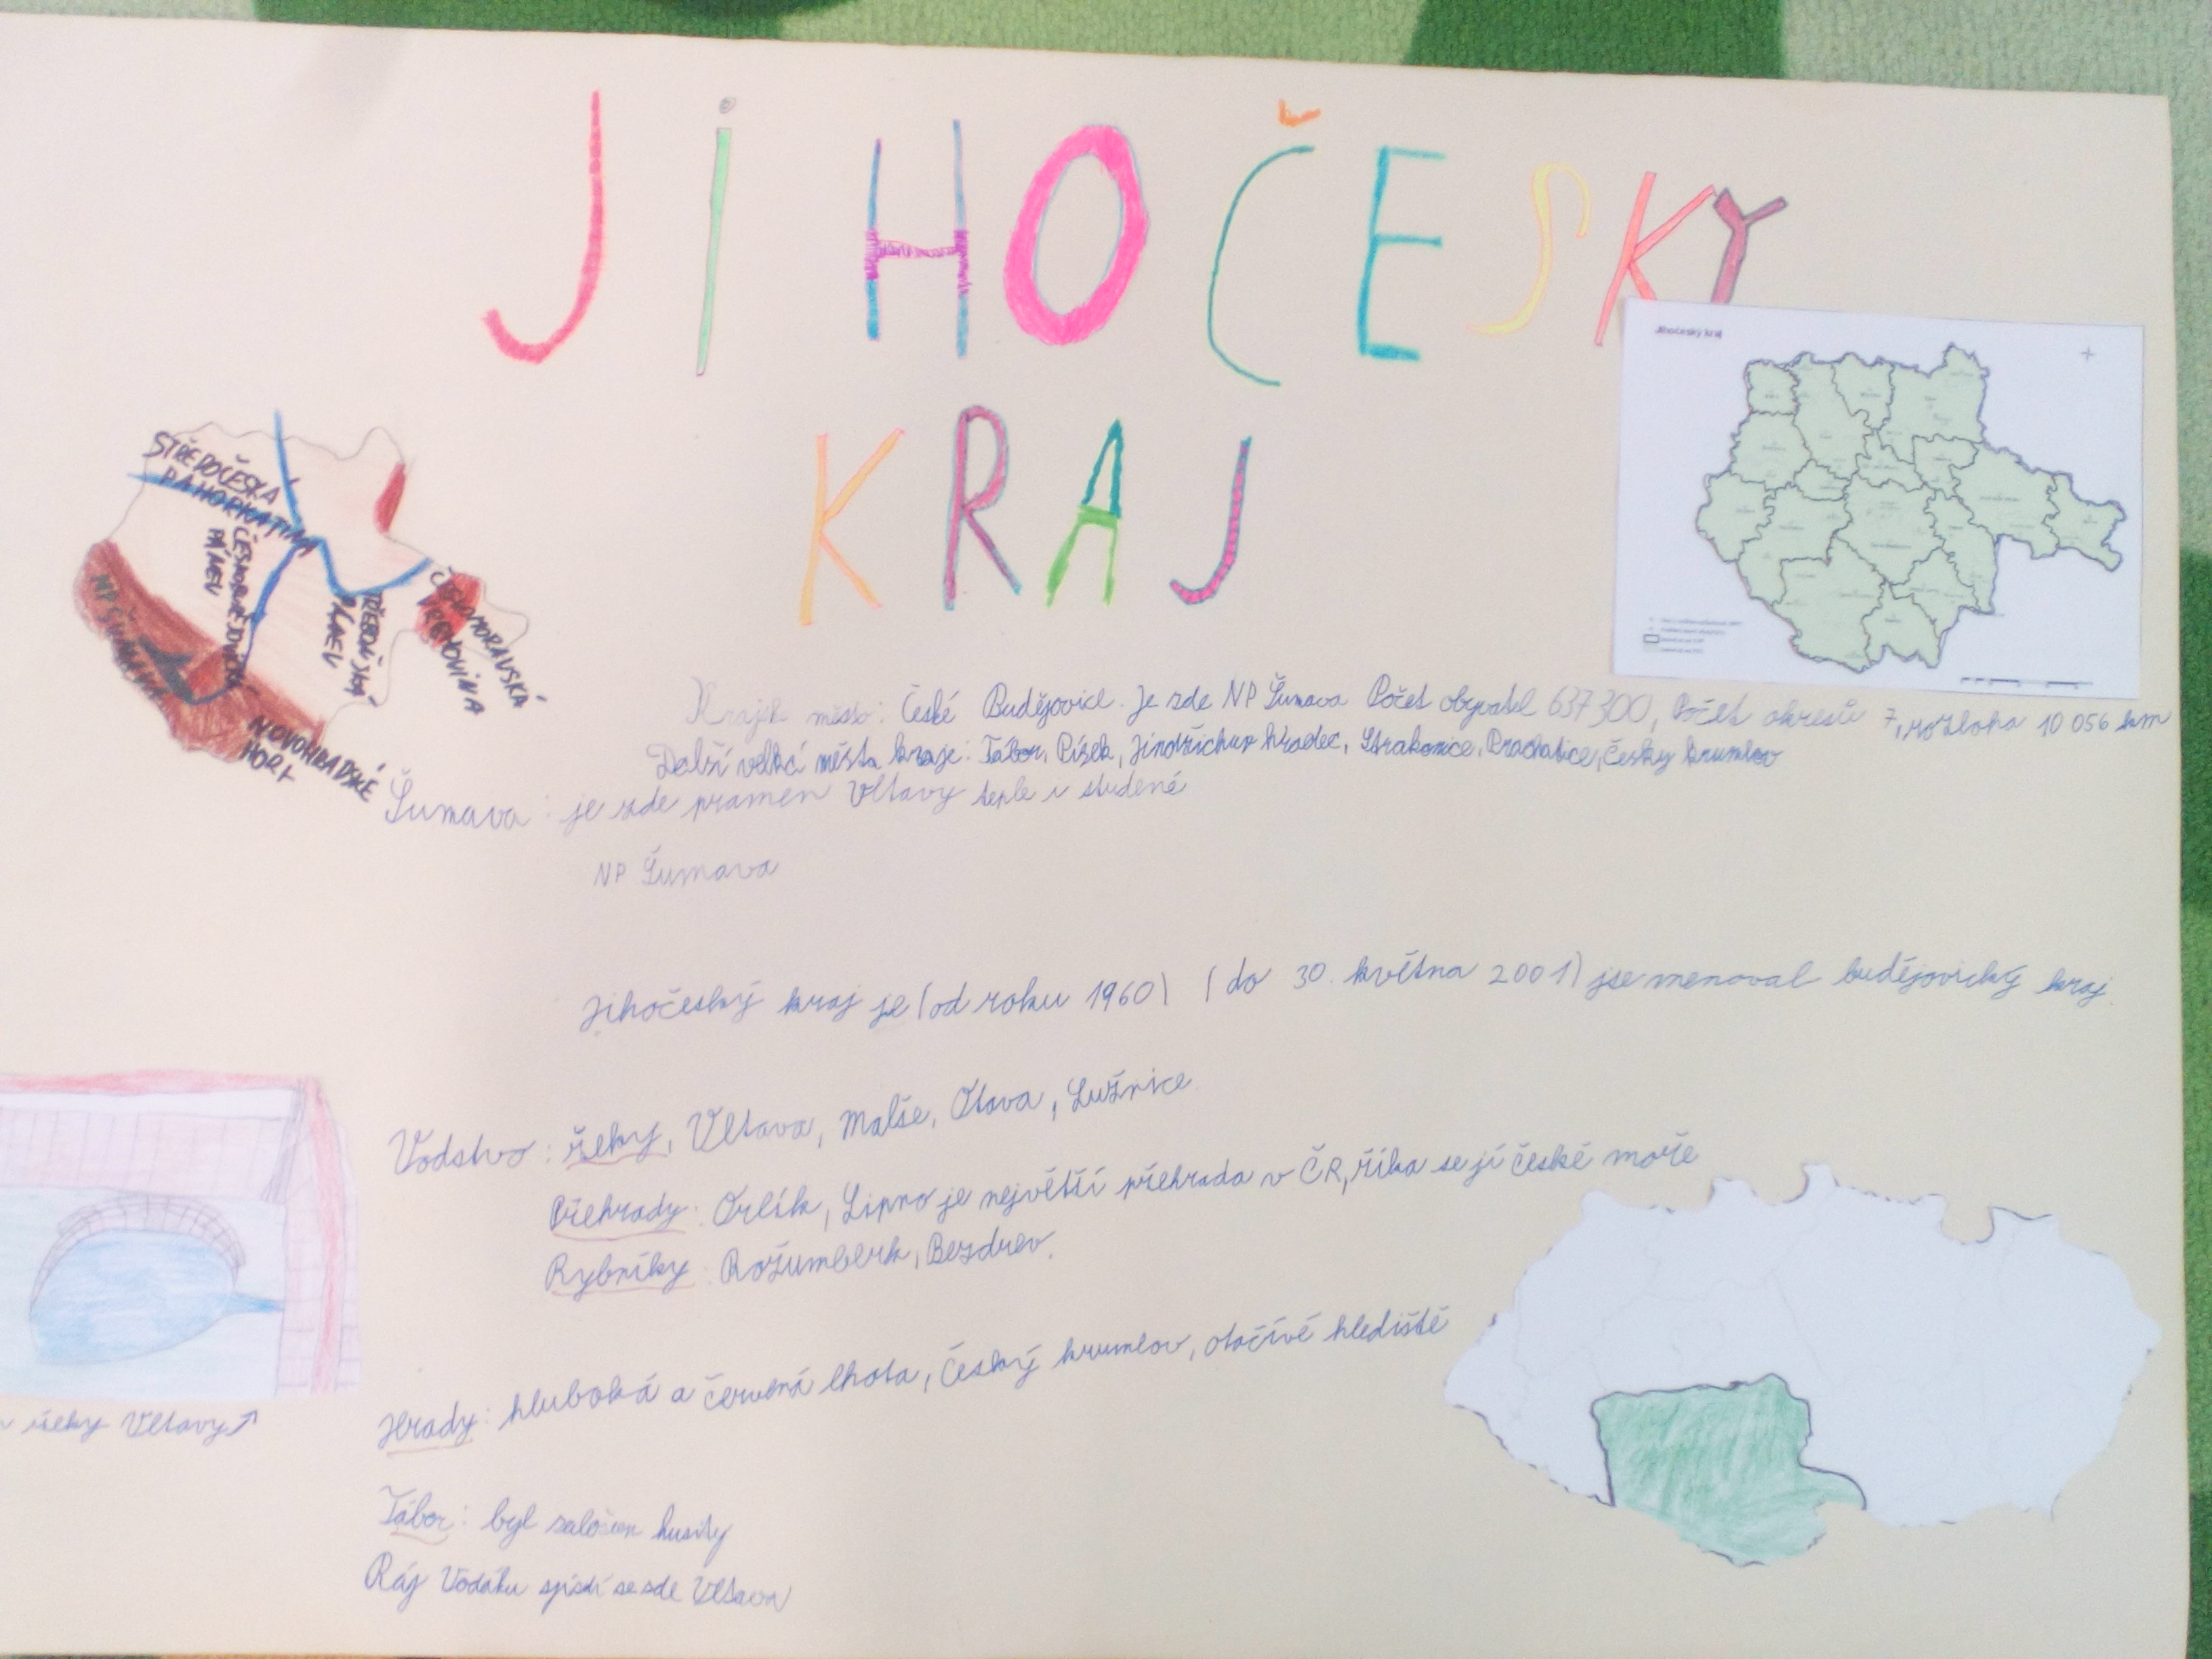 JIHOČESKY
KRAJ
Jihočeský kraj
STŘEDOČESKÁ
PAHORKATINA
ČESKOBUDĚJOVICKÁ
PÁNEV
TŘEBOŇSKÁ
PÁNEV
ČESKOMORAVSKÁ
VRCHOVINA
NP ŠUMAVA
NOVOHRADSKÉ
HORY
Krajsk město: České Budějovice. Je zde NP Šumava Počet obyvatel 637 300, Počet okresů 7, rozloha 10 056 km
Další velká města kraje: Tábor, Písek, Jindřichuv hradec, Strakonice, Prachatice, Česky krumlov
Šumava: je zde pramen Vltavy teple i studené
NP Šumava
Jihočeský kraj je (od roku 1960) (do 30. května 2001) jse menoval budějovický kraj.
Vodstvo: řeky, Vltava, Malše, Otava, Lužnice.
Přehrady: Orlík, Lipno je největší přehrada v ČR, říka se jí české moře
Rybníky: Rožumberk, Bezdrev.
řeky Vltavy ↗
Hrady: hluboká a červená lhota, Český krumlov, otočívé hlediště
Tábor: byl založen husity
Ráj Vodáku sjíždí se zde Vltava